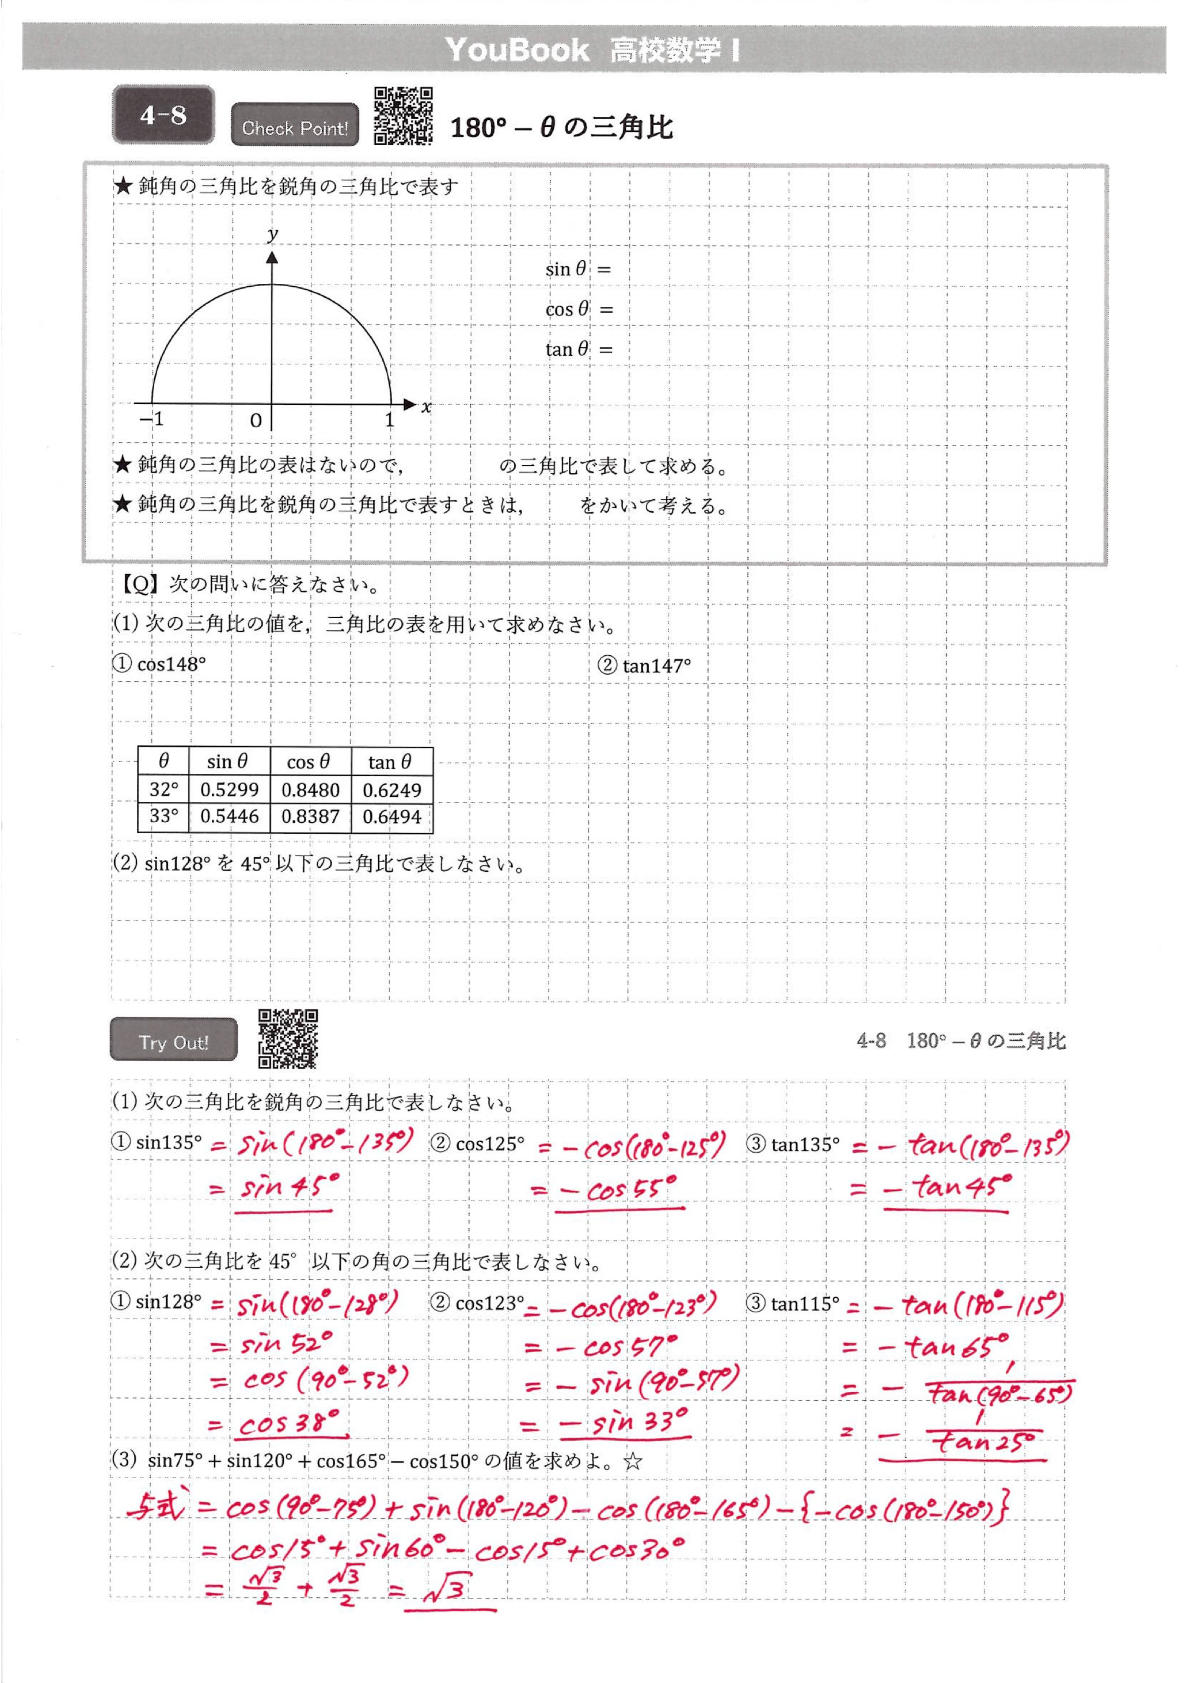 YouBook 高校数学 I
4-8 Check Point! 180° − θ の三角比
★ 鈍角の三角比を鋭角の三角比で表す
y
sin θ =
cos θ =
tan θ =
−1 O 1 x
★ 鈍角の三角比の表はないので, の三角比で表して求める。
★ 鈍角の三角比を鋭角の三角比で表すときは, をかいて考える。
【Q】次の問いに答えなさい。
(1) 次の三角比の値を, 三角比の表を用いて求めなさい。
① cos148° ② tan147°
θ sin θ cos θ tan θ
32° 0.5299 0.8480 0.6249
33° 0.5446 0.8387 0.6494
(2) sin128° を 45° 以下の三角比で表しなさい。
Try Out! 4-8 180° − θ の三角比
(1) 次の三角比を鋭角の三角比で表しなさい。
① sin135° = sin(180°−135°) ② cos125° = −cos(180°−125°) ③ tan135° = − tan(180°−135°)
= sin 45° = − cos 55° = − tan 45°
(2) 次の三角比を 45° 以下の角の三角比で表しなさい。
① sin128° = sin(180°−128°) ② cos123° = −cos(180°−123°) ③ tan115° = − tan(180°−115°)
= sin 52° = − cos 57° = − tan 65°
= cos (90°−52°) = − sin (90°−57°) = − 1/tan(90°−65°)
= cos 38° = − sin 33° = − 1/tan 25°
(3) sin75° + sin120° + cos165° − cos150° の値を求めよ。☆
与式 = cos(90°−75°) + sin(180°−120°) − cos(180°−165°) − {−cos(180°−150°)}
= cos15° + sin60° − cos15° + cos30°
= √3/2 + √3/2 = √3